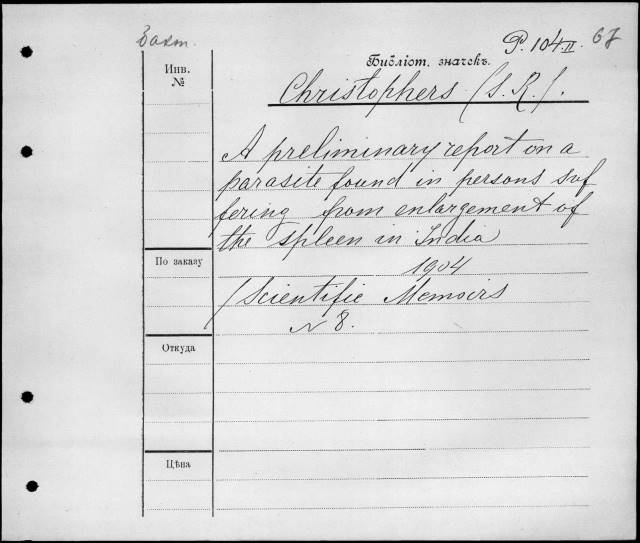 Бакт.
P. 104 II. 67
Инв.
№
Библіот. значекъ.
Christophers (S. R.).
A preliminary report on a
parasite found in persons suf
fering from enlargement of
the spleen in India
По заказу
1904
(Scientific Memoirs
N 8.
Откуда
Цѣна